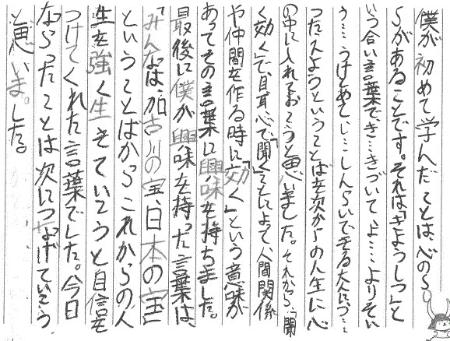 僕が初めて学んだことは、心のら
らがあることです。それは「きようしつ」と
いう合い言葉でき…きづいてよ…よりそい
う…うけとめてし…しんらいできる大人につ…
つたえようということばを次からの人生に心
の中に入れておこうと思いました。それから、「聞
く」「効く」で、耳、心で、「聞く」ことによって、人間関係
や仲間を作る時に「効く」という意味が
あってその言葉に興味を持ちました。
最後に僕が興味を持った言葉は、
「みんなは、加古川の宝、日本の宝」
ということばからこれからの人
生を強く生きていこうと自信を
つけてくれた言葉でした。今日
ならったことは次につなげていこう
と思いました。